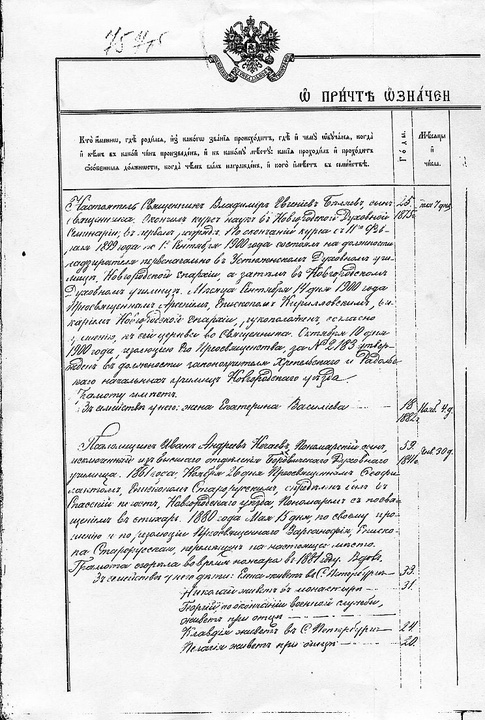 75 
Ѡ ПРИЧТѢ ѠЗНАЧЕН
Годы.
Мѣсяцы и числа.
Кто именно, гдѣ родился, изъ какогѡ званія происходитъ, гдѣ и чему ѡбучался, когда
и кѣмъ въ какой чинъ произведенъ, и къ какому мѣсту: какія проходилъ и проходитъ
должности, когда чѣмъ былъ награжденъ, и кого имѣетъ въ семействѣ.
Настоятель Священникъ Владимиръ Евгеніевъ Бѣляевъ, сынъ 25. Мая 7 дня
священника. Окончилъ курсъ наукъ въ Новгородской Духовной 1875г.
Семинаріи, въ разрядѣ. По окончаніи курса съ 11го Фев-
раля 1899 года по 1е Сентября 1900 года состоялъ на должности
надзирателя первоначально въ Устюженскомъ Духовномъ учи-
лищѣ, Новгородской епархіи, а затѣмъ въ Новгородскомъ
Духовномъ училищѣ. Мѣсяца Сентября 14 дня 1900 года
Преосвященнымъ Арсеніемъ, Епископомъ Кирилловскимъ, ви-
каріемъ Новгородской епархіи, рукоположенъ, согласно
къ сей церкви во Священника. Октября 10 дня
1900 года, резолюціею Его Преосвященства, за № 2183 утвер-
жденъ въ должности законоучителя и
начальныхъ училищъ Новгородскаго уѣзда.
Грамоту имѣетъ.
Въ семействѣ у него: жена Екатерина Васильева 18. Нояб. 4 д.
1882г.
Псаломщикъ Иванъ Андреевъ Ногаевъ, Пономарскій сынъ, 59. Янв. 30 д.
исключенный изъ высшаго отдѣленія Боровичскаго Духовнаго 1841г.
училища. 1861 года, Ноября 26 дня Преосвященнымъ Ѳеофи-
лактомъ, Епископомъ Старорусскимъ, опредѣленъ былъ въ
Спасскій погостъ, Новгородскаго уѣзда, Пономаремъ съ посвя-
щеніемъ въ стихарь. 1880 года Мая 15 дня, по своему про-
шенію и по резолюціи Преосвященнаго Варсонофія, Еписко-
па Старорусскаго, перемѣщенъ на настоящее мѣсто.
Грамота сгорѣла во время пожара въ 1881 году. Вдовъ.
Въ семействѣ у него дѣти: живетъ въ С. Петербургѣ 33.
Николай живетъ въ монастырѣ 31.
Георгій по окончаніи военной службы,
живетъ при отцѣ
Клавдія живетъ въ С. Петербургѣ 24.
Пелагія живетъ при отцѣ 20.